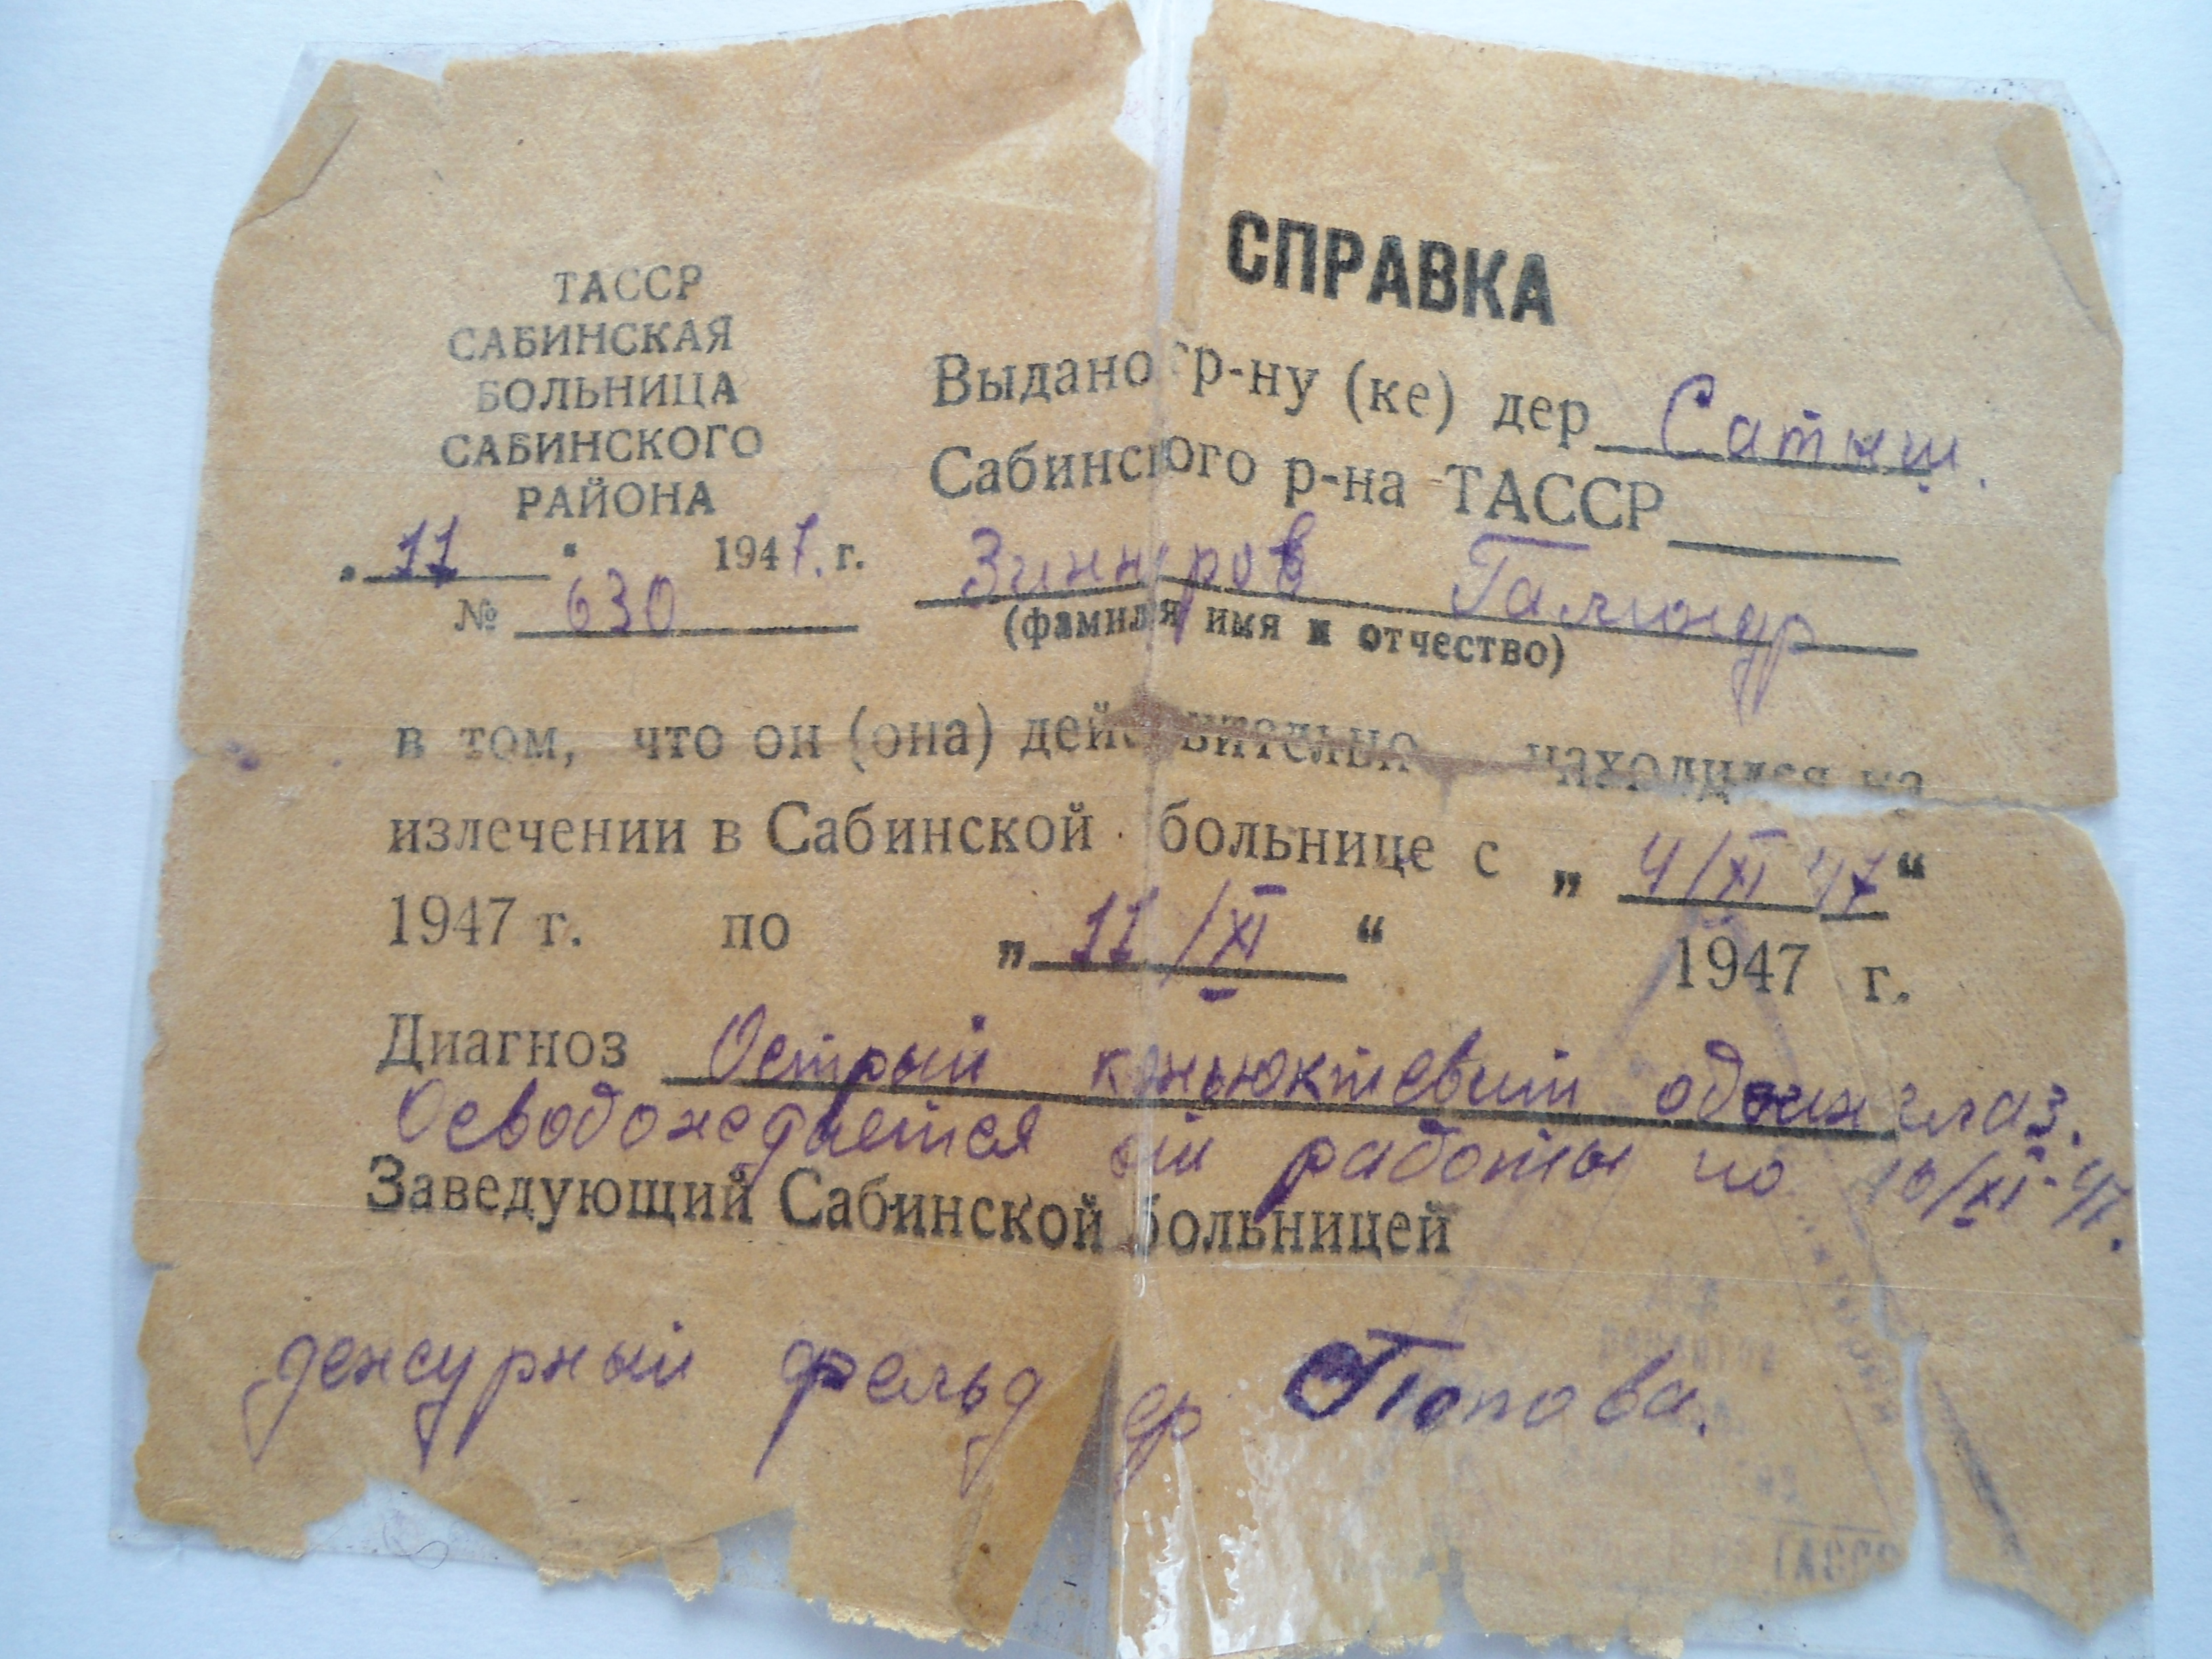 ТАССР
САБИНСКАЯ
БОЛЬНИЦА
САБИНСКОГО
РАЙОНА
„ 11 “ 1947. г.
№ 630
СПРАВКА
Выдано гр-ну (ке) дер Сатыш.
Сабинского р-на ТАССР
Зиннуров
(фамилия имя и отчество)
в том, что он (она) действительно находился на
излечении в Сабинской больнице с „ 4/XI 47 “
1947 г. по „ 11/XI “ 1947 г.
Диагноз Острый коньюктевит обоих глаз.
Освобождается от работы по /XI-47.
Заведующий Сабинской больницей
дежурный фельд ер Попова.
ТАССР